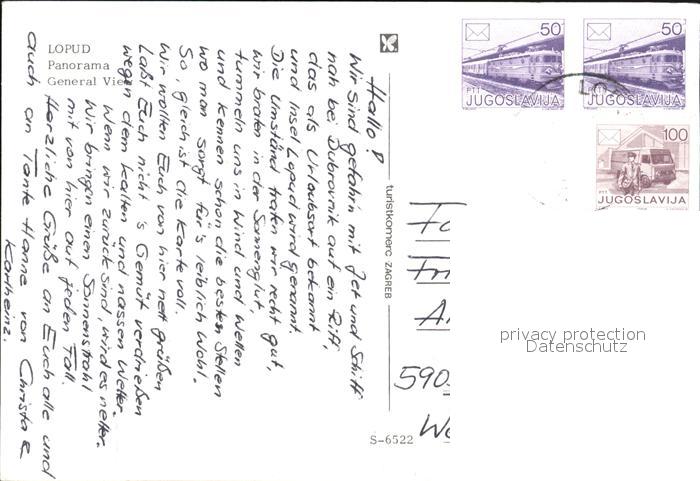 LOPUD
Panorama
General View
Hallo!
Wir sind gefahrn mit Jet und Schiff
nah bei Dubrovnik auf ein Riff,
das als Urlaubsort bekannt
und Insel Lopud wird genannt.
Die Umständ trafen wir recht gut,
wir braten in der Sonnenglut,
tummeln uns in Wind und Wellen
und kennen schon die besten Stellen
wo man sorgt für's leiblich Wohl.
So, gleich ist die Karte voll.
Wir wollen Euch von hier nett grüßen
Laßt Euch nicht 's Gemüt verdrießen
wegen dem kalten und nassen Wetter.
Wenn wir zurück sind, wird es netter.
Wir bringen einen Sonnenstrahl
mit von hier auf jeden Fall.
Herzliche Grüße an Euch alle und
auch an Tante Hanne von Christa &
Karlheinz.
turistkomerc ZAGREB
S-6522
50
PTT
JUGOSLAVIJA
50
PTT
JUGOSLAVIJA
100
PTT
JUGOSLAVIJA
590
privacy protection
Datenschutz